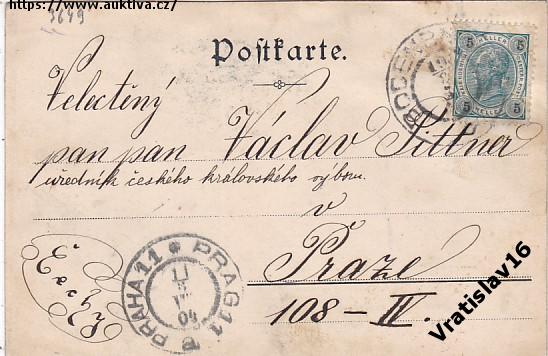 https://www.auktiva.cz/
3649
Postkarte.
5 HELLER 5
5 HELLER 5
Velectěný
pan pan Václav Tittner
úředník českého královského výboru.
v
Praze
108–IV.
Čechy
PRAHA 11 PRAG 11
04
Vratislav16